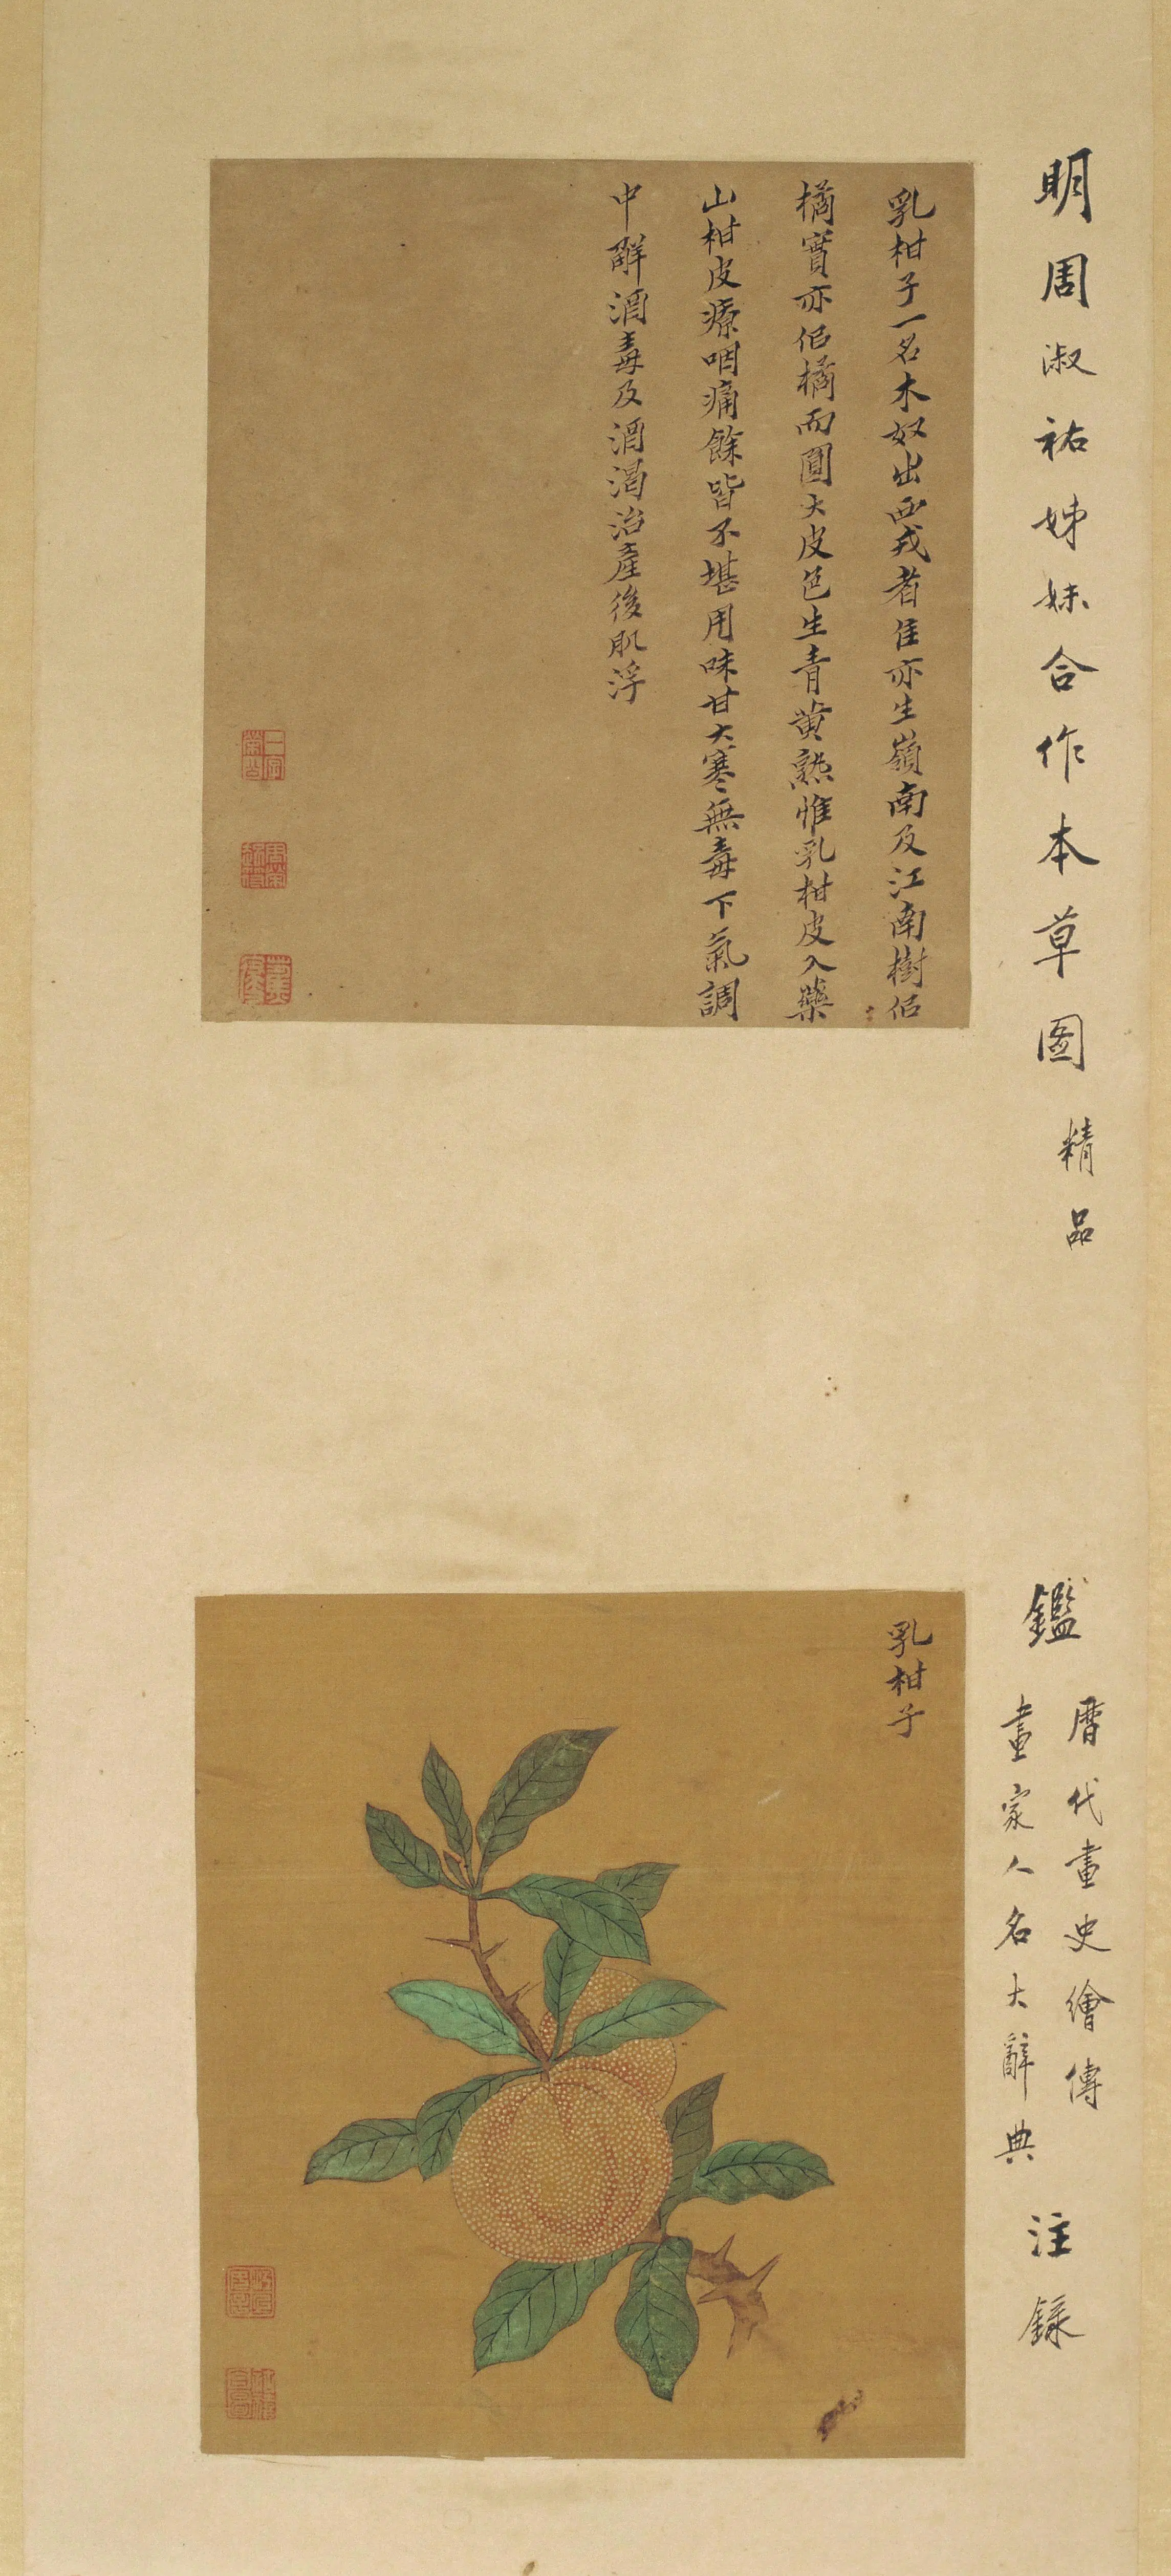 明周淑祜姊妹合作本草图 精品
乳柑子一名木奴出西戎者佳亦生嶺南及江南樹佀
橘實亦佀橘而圓大皮色生青黃熟惟乳柑皮入藥
山柑皮療咽痛餘皆不堪用味甘大寒無毒下氣調
中解酒毒及酒渴治產後肌浮
鑑
曆代畫史繪傳
畫家人名大辭典
注錄
乳柑子